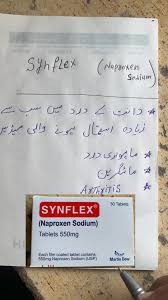 Synflex (Naproxen
Sodium)
دانت کے درد میں سب سے
زیادہ استعمال ہونے والی میڈیسن
* ماہواری درد
* مائگرین
* Arthritis
SYNFLEX®
(Naproxen Sodium)
Tablets 550mg
30 Tablets
Each film coated tablet contains:
550mg Naproxen Sodium (USP)
Martin Dow